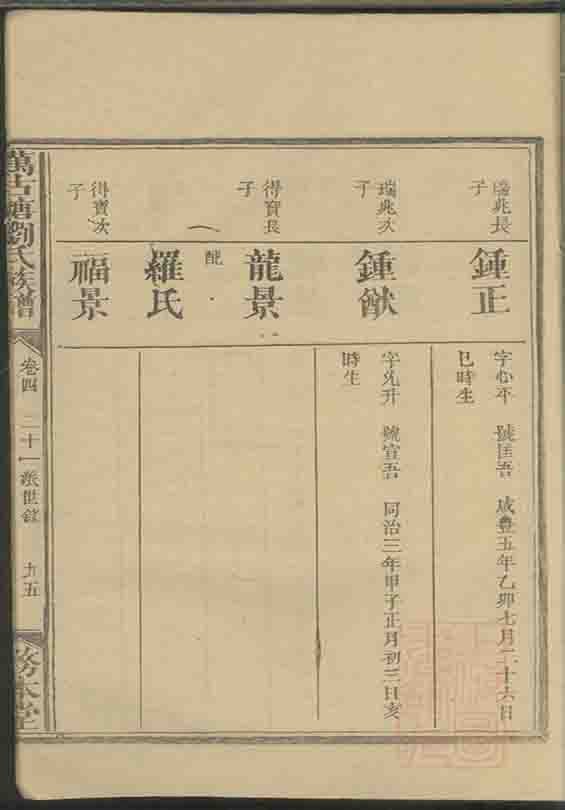 瑞兆長
子
鍾正
字心平 號匡吾 咸豐五年乙卯七月二十六日
巳時生
瑞兆次
子
鍾猷
字允升 號宣吾 同治三年甲子正月初三日亥
時生
得寶長
子
龍景
配
羅氏
得寶次
子
福景
萬古塘劉氏族譜
卷四
二十一派世錄
九五
務本堂